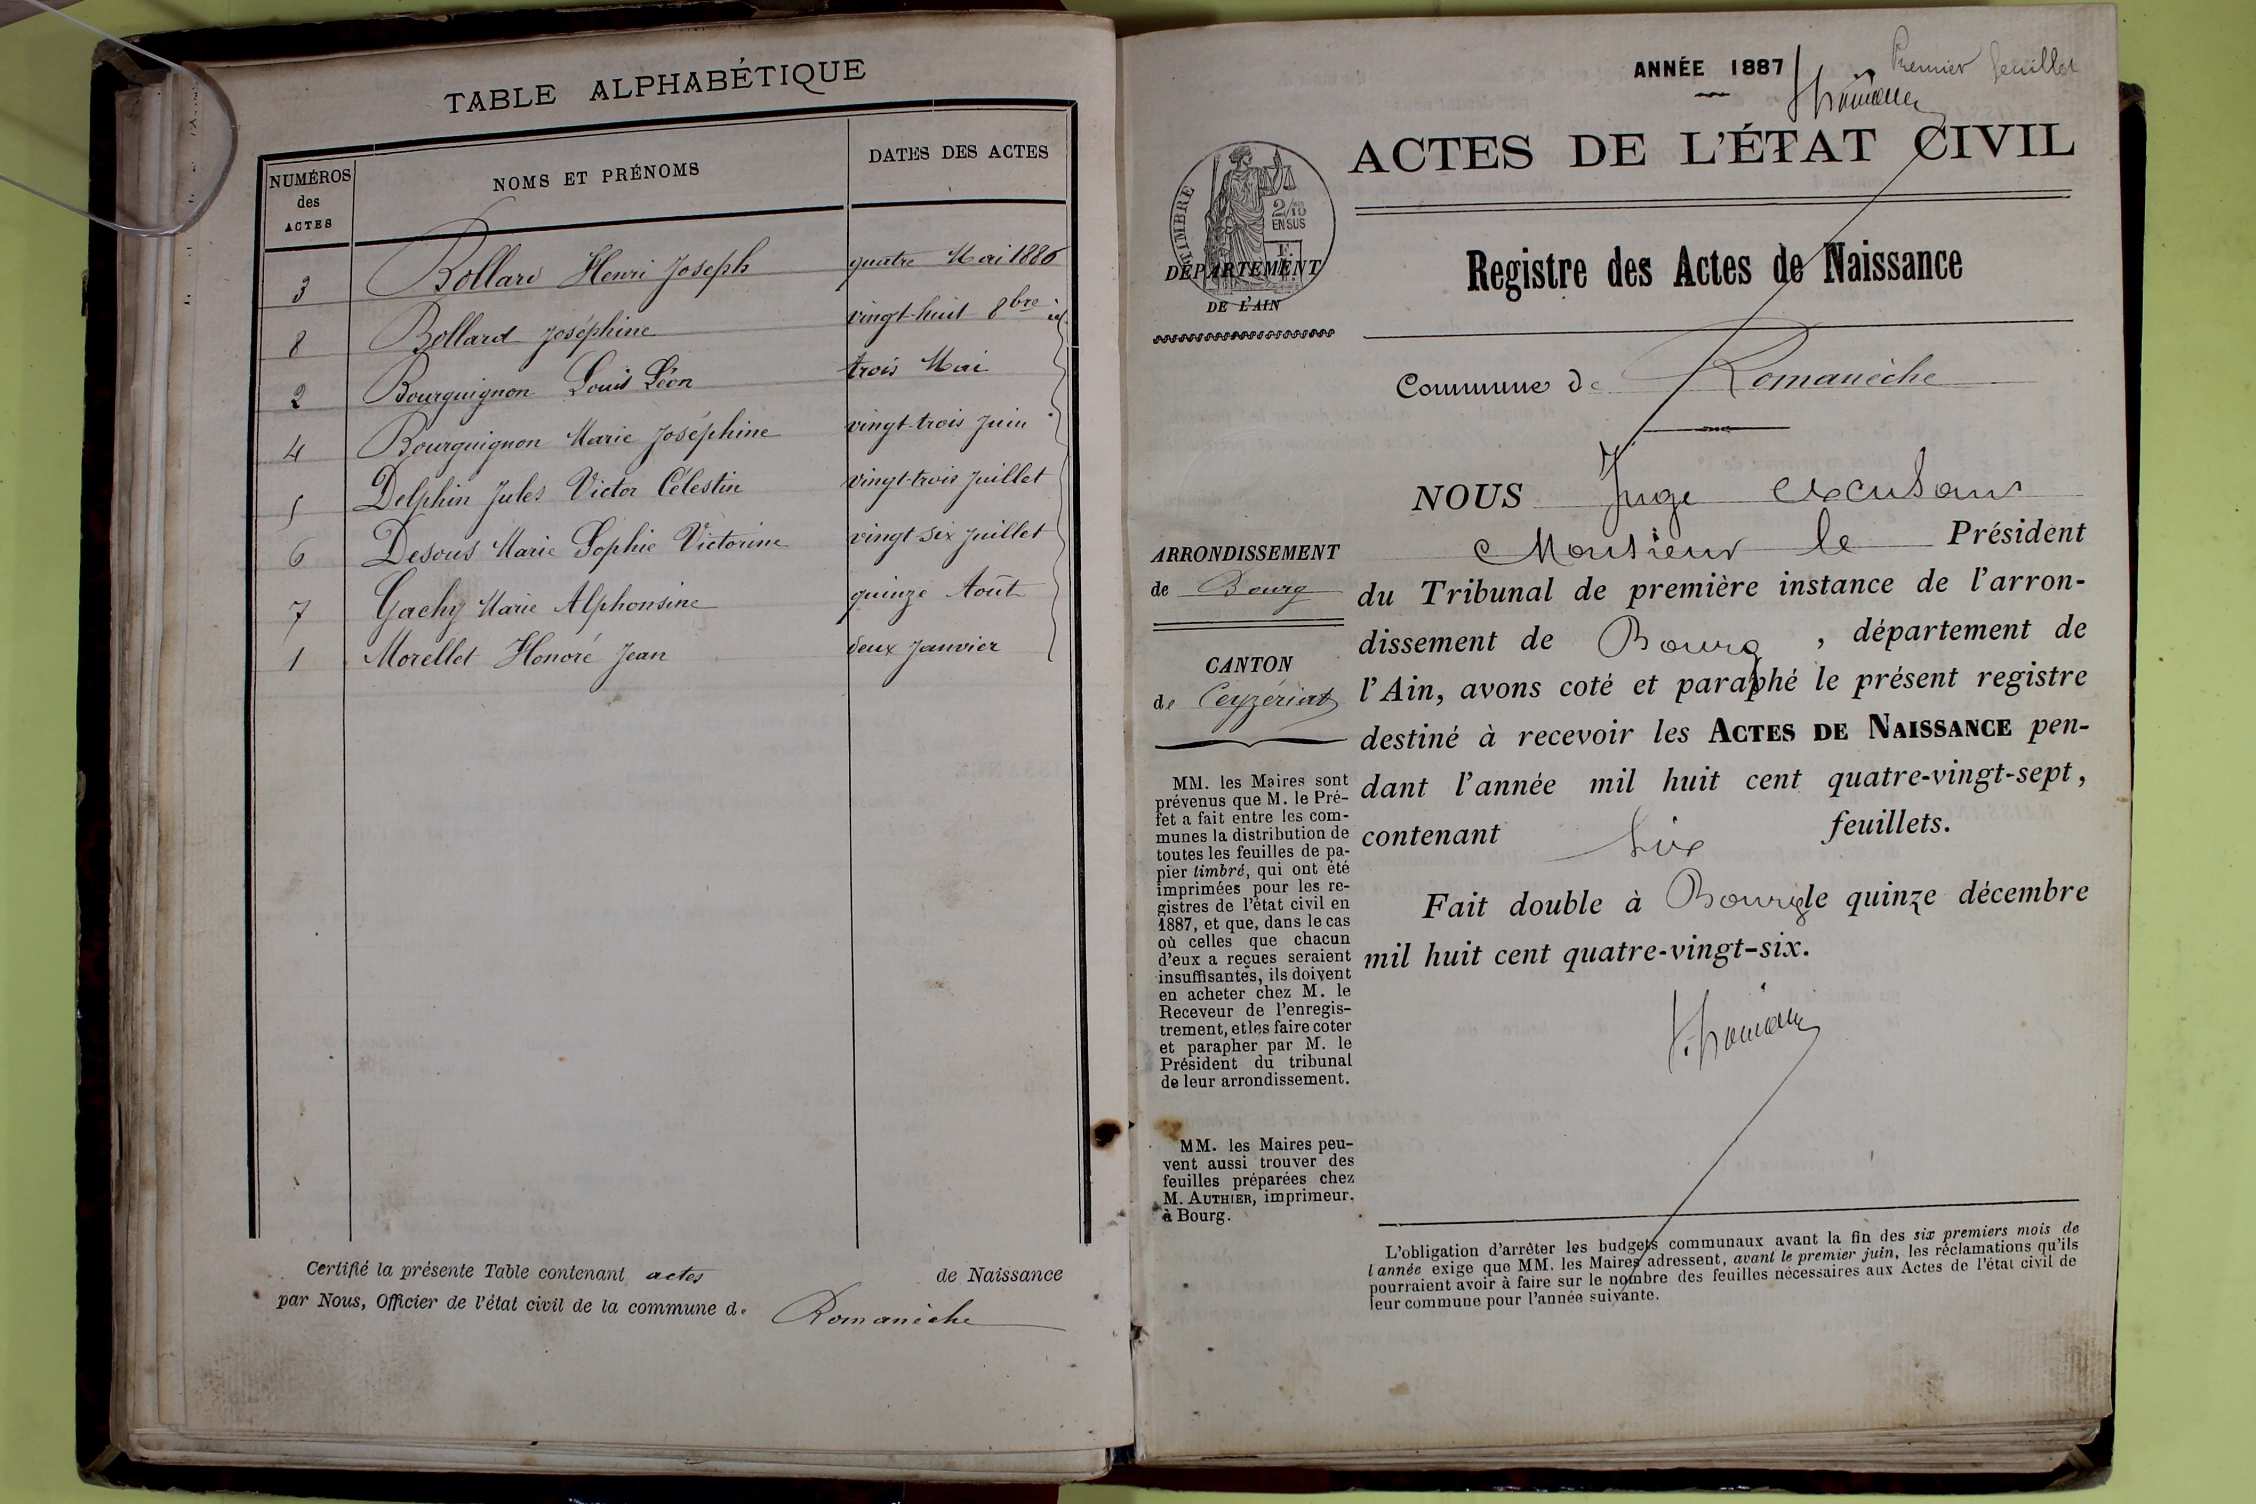 TABLE ALPHABÉTIQUE
NUMÉROS des ACTES
NOMS ET PRÉNOMS
DATES DES ACTES
3 Bollard Henri Joseph quatre Mai 1886
8 Bollard Joséphine vingt-huit 8bre id
2 Bourguignon Louis Léon trois Mai
4 Bourguignon Marie Joséphine vingt-trois Juin
5 Delphin Jules Victor Célestin vingt-trois Juillet
6 Desous Marie Sophie Victorine vingt-six Juillet
7 Gachy Marie Alphonsine quinze Août
1 Morellet Honoré Jean deux Janvier
Certifié la présente Table contenant actes de Naissance
par Nous, Officier de l'état civil de la commune de Romanèche
ANNÉE 1887
Premier feuillet
ACTES DE L'ÉTAT CIVIL
TIMBRE
2/10
EN SUS
DÉPARTEMENT
DE L'AIN
Registre des Actes de Naissance
Commune de Romanèche
ARRONDISSEMENT
de Bourg
CANTON
de Ceyzériat
MM. les Maires sont
prévenus que M. le Pré-
fet a fait entre les com-
munes la distribution de
toutes les feuilles de pa-
pier timbré, qui ont été
imprimées pour les re-
gistres de l'état civil en
1887, et que, dans le cas
où celles que chacun
d'eux a reçues seraient
insuffisantes, ils doivent
en acheter chez M. le
Receveur de l'enregis-
trement, et les faire coter
et parapher par M. le
Président du tribunal
de leur arrondissement.
MM. les Maires peu-
vent aussi trouver des
feuilles préparées chez
M. AUTHIER, imprimeur,
à Bourg.
NOUS Juge excusant
Monsieur le Président
du Tribunal de première instance de l'arron-
dissement de Bourg, département de
l'Ain, avons coté et paraphé le présent registre
destiné à recevoir les ACTES DE NAISSANCE pen-
dant l'année mil huit cent quatre-vingt-sept,
contenant six feuillets.
Fait double à Bourg le quinze décembre
mil huit cent quatre-vingt-six.
L'obligation d'arrêter les budgets communaux avant la fin des six premiers mois de
l'année exige que MM. les Maires adressent, avant le premier juin, les réclamations qu'ils
pourraient avoir à faire sur le nombre des feuilles nécessaires aux Actes de l'état civil de
leur commune pour l'année suivante.